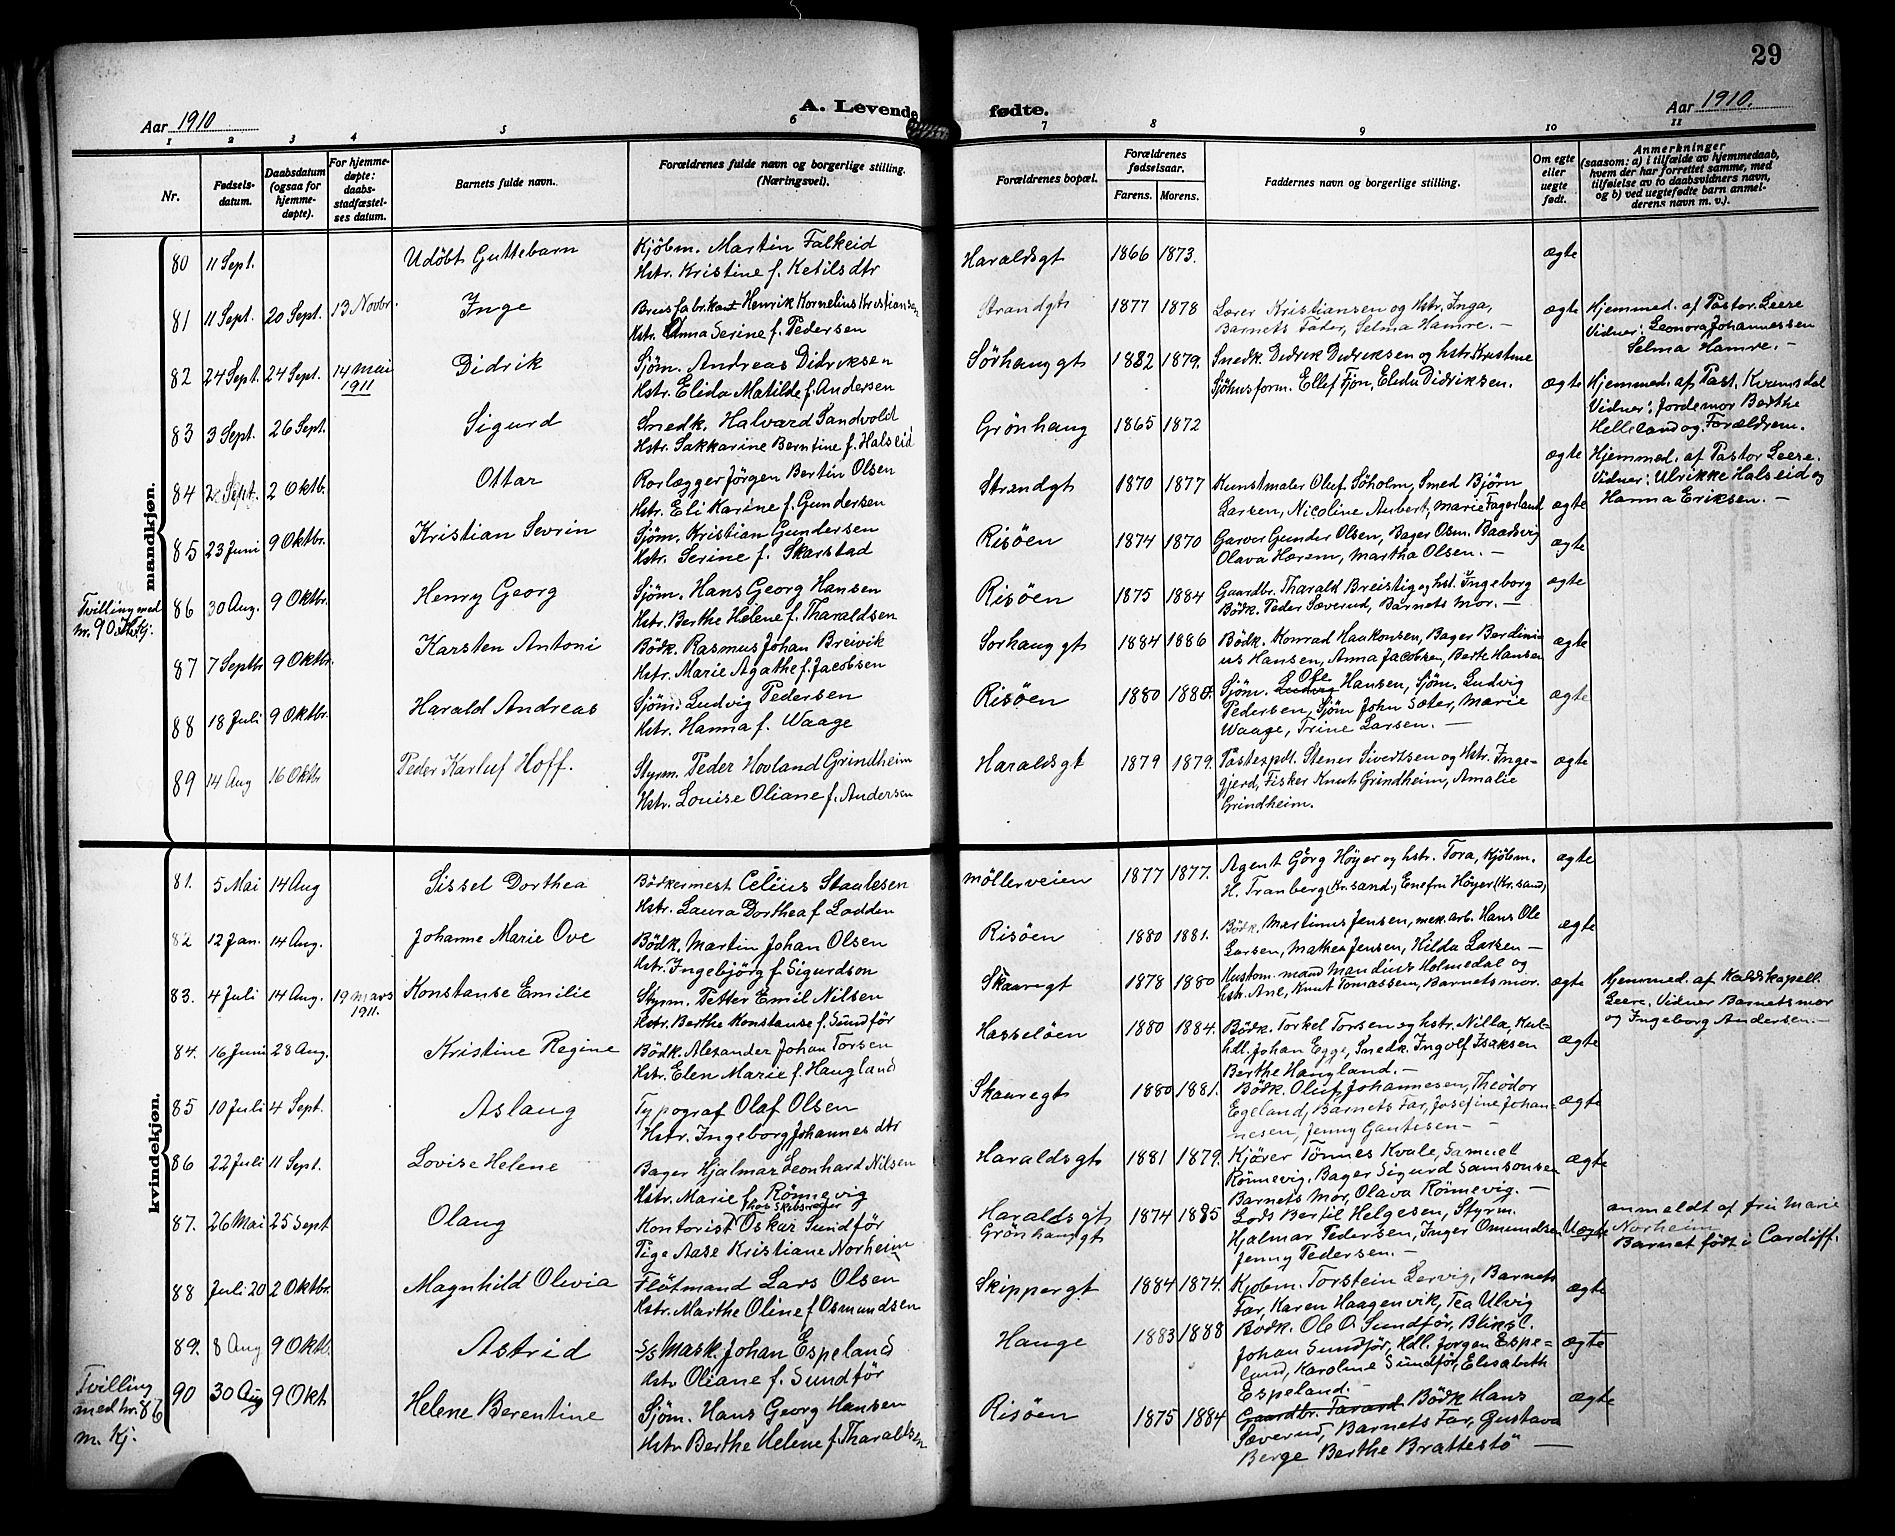 29
Aar 1910
A. Levende fødte.
Aar 1910.
1 2 3 4 5 6 7 8 9 10 11
Nr.
Fødsels-
datum.
Daabsdatum
(ogsaa for
hjemme-
døpte).
For hjemme-
døpte:
daabs-
stadfæstel-
ses datum.
Barnets fulde navn.
Forældrenes fulde navn og borgerlige stilling.
(Næringsvei).
Forældrenes bopæl.
Forældrenes
fødselsaar.
Farens. Morens.
Faddernes navn og borgerlige stilling.
Om egte
eller
uegte
født.
Anmerkninger
(saasom: a) i tilfælde av hjemmedaab,
hvem der har forrettet samme, med
tilføielse av to daabsvidners navn,
og b) ved uegtefødte barn anmel-
derens navn m. v.).
mandkjøn.
80 11 Sept. Udöbt Guttebarn Kjöbm. Martin Falkeid Haraldsgt 1866 1873. ægte
Hstr. Kristine f. Ketilsdtr
81 11 Sept. 20 Sept. 13 Novbr. Inge Brusfabrikant Henrik Kornelius Kristiansen Strandgt 1877 1878 Lærer Kristiansen og Hstr. Inga, ægte Hjemmed. af Pastor Leere
Hstr. Anna Serine f. Pedersen Barnets Fader, Selma Hamre. — Vidner: Leonora Johannessen
Selma Hamre. —
82 24 Sept. 24 Sept. 14 mai 1911 Didrik Sjöm. Andreas Didriksen Sörhauggt 1882 1879. Snedk. Didrik Didriksen og hstr. Kristine ægte Hjemmed. af Past. Kvamsdal
Hstr. Elida Matilde f. Andersen Sjöhusform. Ellef Fjon, Elida Didriksen. Vidner: Jordemor Berthe
Helleland og Forældrem.
83 3 Sept. 26 Sept. Sigurd Snedk. Halvard Sandvold Grönhaug 1865 1872 ægte Hjemmed. af Pastor Leere.
Hstr. Sakkarine Berntine f. Halseid Vidner: Ulrikke Halseid og
Hanna Eriksen. —
84 2 Sept. 2 Oktb. Ottar Rorlægger Jörgen Bertin Olsen Strandgt 1870 1877 Kunstmaler Oluf Söholm, Smed Björn
Hstr. Eli Karine f. Gundersen Larsen, Nicoline Aubert, Marie Fagerland ægte
85 23 Juni 9 Oktbr. Kristian Sevrin Sjöm. Kristian Gundersen Risöen 1874 1870 Garver Gunder Olsen, Bager Osm. Baardsvig ægte
Hstr. Serine f. Skarstad Olava Hærem, Martha Olsen. —
Tvilling med
nr. 90 Kv.kj.
86 30 Aug. 9 Oktb. Henry Georg Sjöm. Hans Georg Hansen Risöen 1875 1884 Gaardbr. Tharald Breistig og hst. Ingeborg ægte
Hstr. Berthe Helene f. Tharaldsen Bödk. Peder Sæverud, Barnets Mor. —
87 7 Septb 9 Oktbr. Karsten Antoni Bödk. Rasmus Johan Breivik Sörhauggt 1884 1886 Bödk. Konrad Haakonsen, Bager Berdini- ægte
Hstr. Marie Agathe f. Jacobsen us Hansen, Anna Jacobsen, Berte Hansen
88 18 Juli 9 Oktbr. Harald Andreas Sjöm. Ludvig Pedersen Risöen 1880 1880. Sjöm. Ludvig Ole Hansen, Sjöm. Ludvig ægte
Hstr. Hanna f. Waage Pedersen, Sjöm John Sæter, Marie
Waage, Trine Larsen. —
89 14 Aug 16 Oktbr Peder Karluf Hoff. Styrm. Peder Hovland Grindheim Haraldsgt 1879 1879. Stener Sivertsen og Hstr. Inge- ægte
Hstr. Louise Oliane f. Andersen gjerd, Fisker Knut Grindheim, Amalie
Grindheim.
kvindekjøn.
81. 5 Mai 14 Aug Sissel Dorthea Bödkermest. Celius Staalesen Möllerveien 1877 1877. Agent Görg Höyer og hstr. Tora, Kjöbm. ægte
Hstr. Laura Dorthea f. Lodden H. Tranberg (Kr.sand), Enefru Höyer (Kr.sand)
82 12 Jan. 14 Aug. Johanne Marie Ove Bödk. Martin Johan Olsen Risöen 1880 1881. Bödk. Martinus Jensen, mek.arb. Hans Ole ægte
Hstr. Ingebjörg f. Sigurdson Larsen, Mathea Jensen, Hilda Larsen —
83. 4 Juli 14 Aug. 19 mars 1911. Konstanse Emilie Styrm. Petter Emil Nilsen Skauregt 1878 1880 Hustom. mand Mandius Holmedal og ægte Hjemmed. af Kaldskapell.
Hstr. Berthe Konstanse f. Sundför hstr. Ane, Knut Tomassen, Barnets mor. Leere, Vidner Barnets mor
og Ingeborg Andersen. —
84. 16 Juni 28 Aug. Kristine Regine Bödk. Alexander Johan Torsen Hasselöen 1880 1884. Bödk. Torkel Torsen og hstr. Nilla, Kul- ægte
Hstr. Elen Marie f. Haugland hdl. Johan Egge, Snedk. Ingolf Isaksen
Berthe Haugland. —
85 10 Juli 4 Sept. Aslaug Typograf Olaf Olsen Skauregt 1880 1881. Bödk. Oluf Johannesen, Theodor ægte
Hstr. Ingeborg Johannesdtr Egeland, Barnets Far, Josefine Johan-
nesen, Jenny Gautesen —
86 22 Juli 11 Sept. Lovise Helene Bager Hjalmar Leonhard Nilsen Haraldsgt 1881 1879. Kjörer Tönnes Kvale, Samuel ægte
Hstr. Marie f. Rönnevig Rönnevig, Bager Sigurd Samsonsen
Barnets Mor, Olava Rönnevig. —
87. 26 Mai 25 Sept Olaug Kontorist hos Skibsreder Oskar Sundför Haraldsgt 1874 1885 Lods Bertil Helgesen, Styrm. Uægte anmeldt af fru Marie
Pige Aase Kristiane Norheim Grönhauggt Hjalmar Pedersen, Inger Omundsen Norheim
Jenny Pedersen. — Barnet födt i Cardiff.
88 Juli 20 2 Oktbr. Magnhild Olivia Flötmand Lars Olsen Skippergt 1884 1874. Kjöbm. Torstein Lervig, Barnets ægte
Hstr. Marthe Oline f. Osmundsen Far, Karen Haagenvik, Tea Ulvig
89. 8 Aug 9 Oktb. Astrid S/S Mask. Johan Espeland Hauge 1883 1888 Bödk. Ole O. Sundför, Bliksl. ægte
Hstr Oliane f. Sundför Johan Sundför, Hdl. Jörgen Espe-
land, Karoline Sundför, Elisabeth
Espeland. —
Tvilling
med nr. 86
m. Kj.
90 30 Aug 9 Okt Helene Berentine Sjöm. Hans Georg Hansen Risöen 1875 1884 Gaardbr. Tarard Bödk Hans ægte
Hstr Berthe Helene f. Tharaldsen Sæverud, Barnets Far, Gustava
Berge Berthe Brattestö —